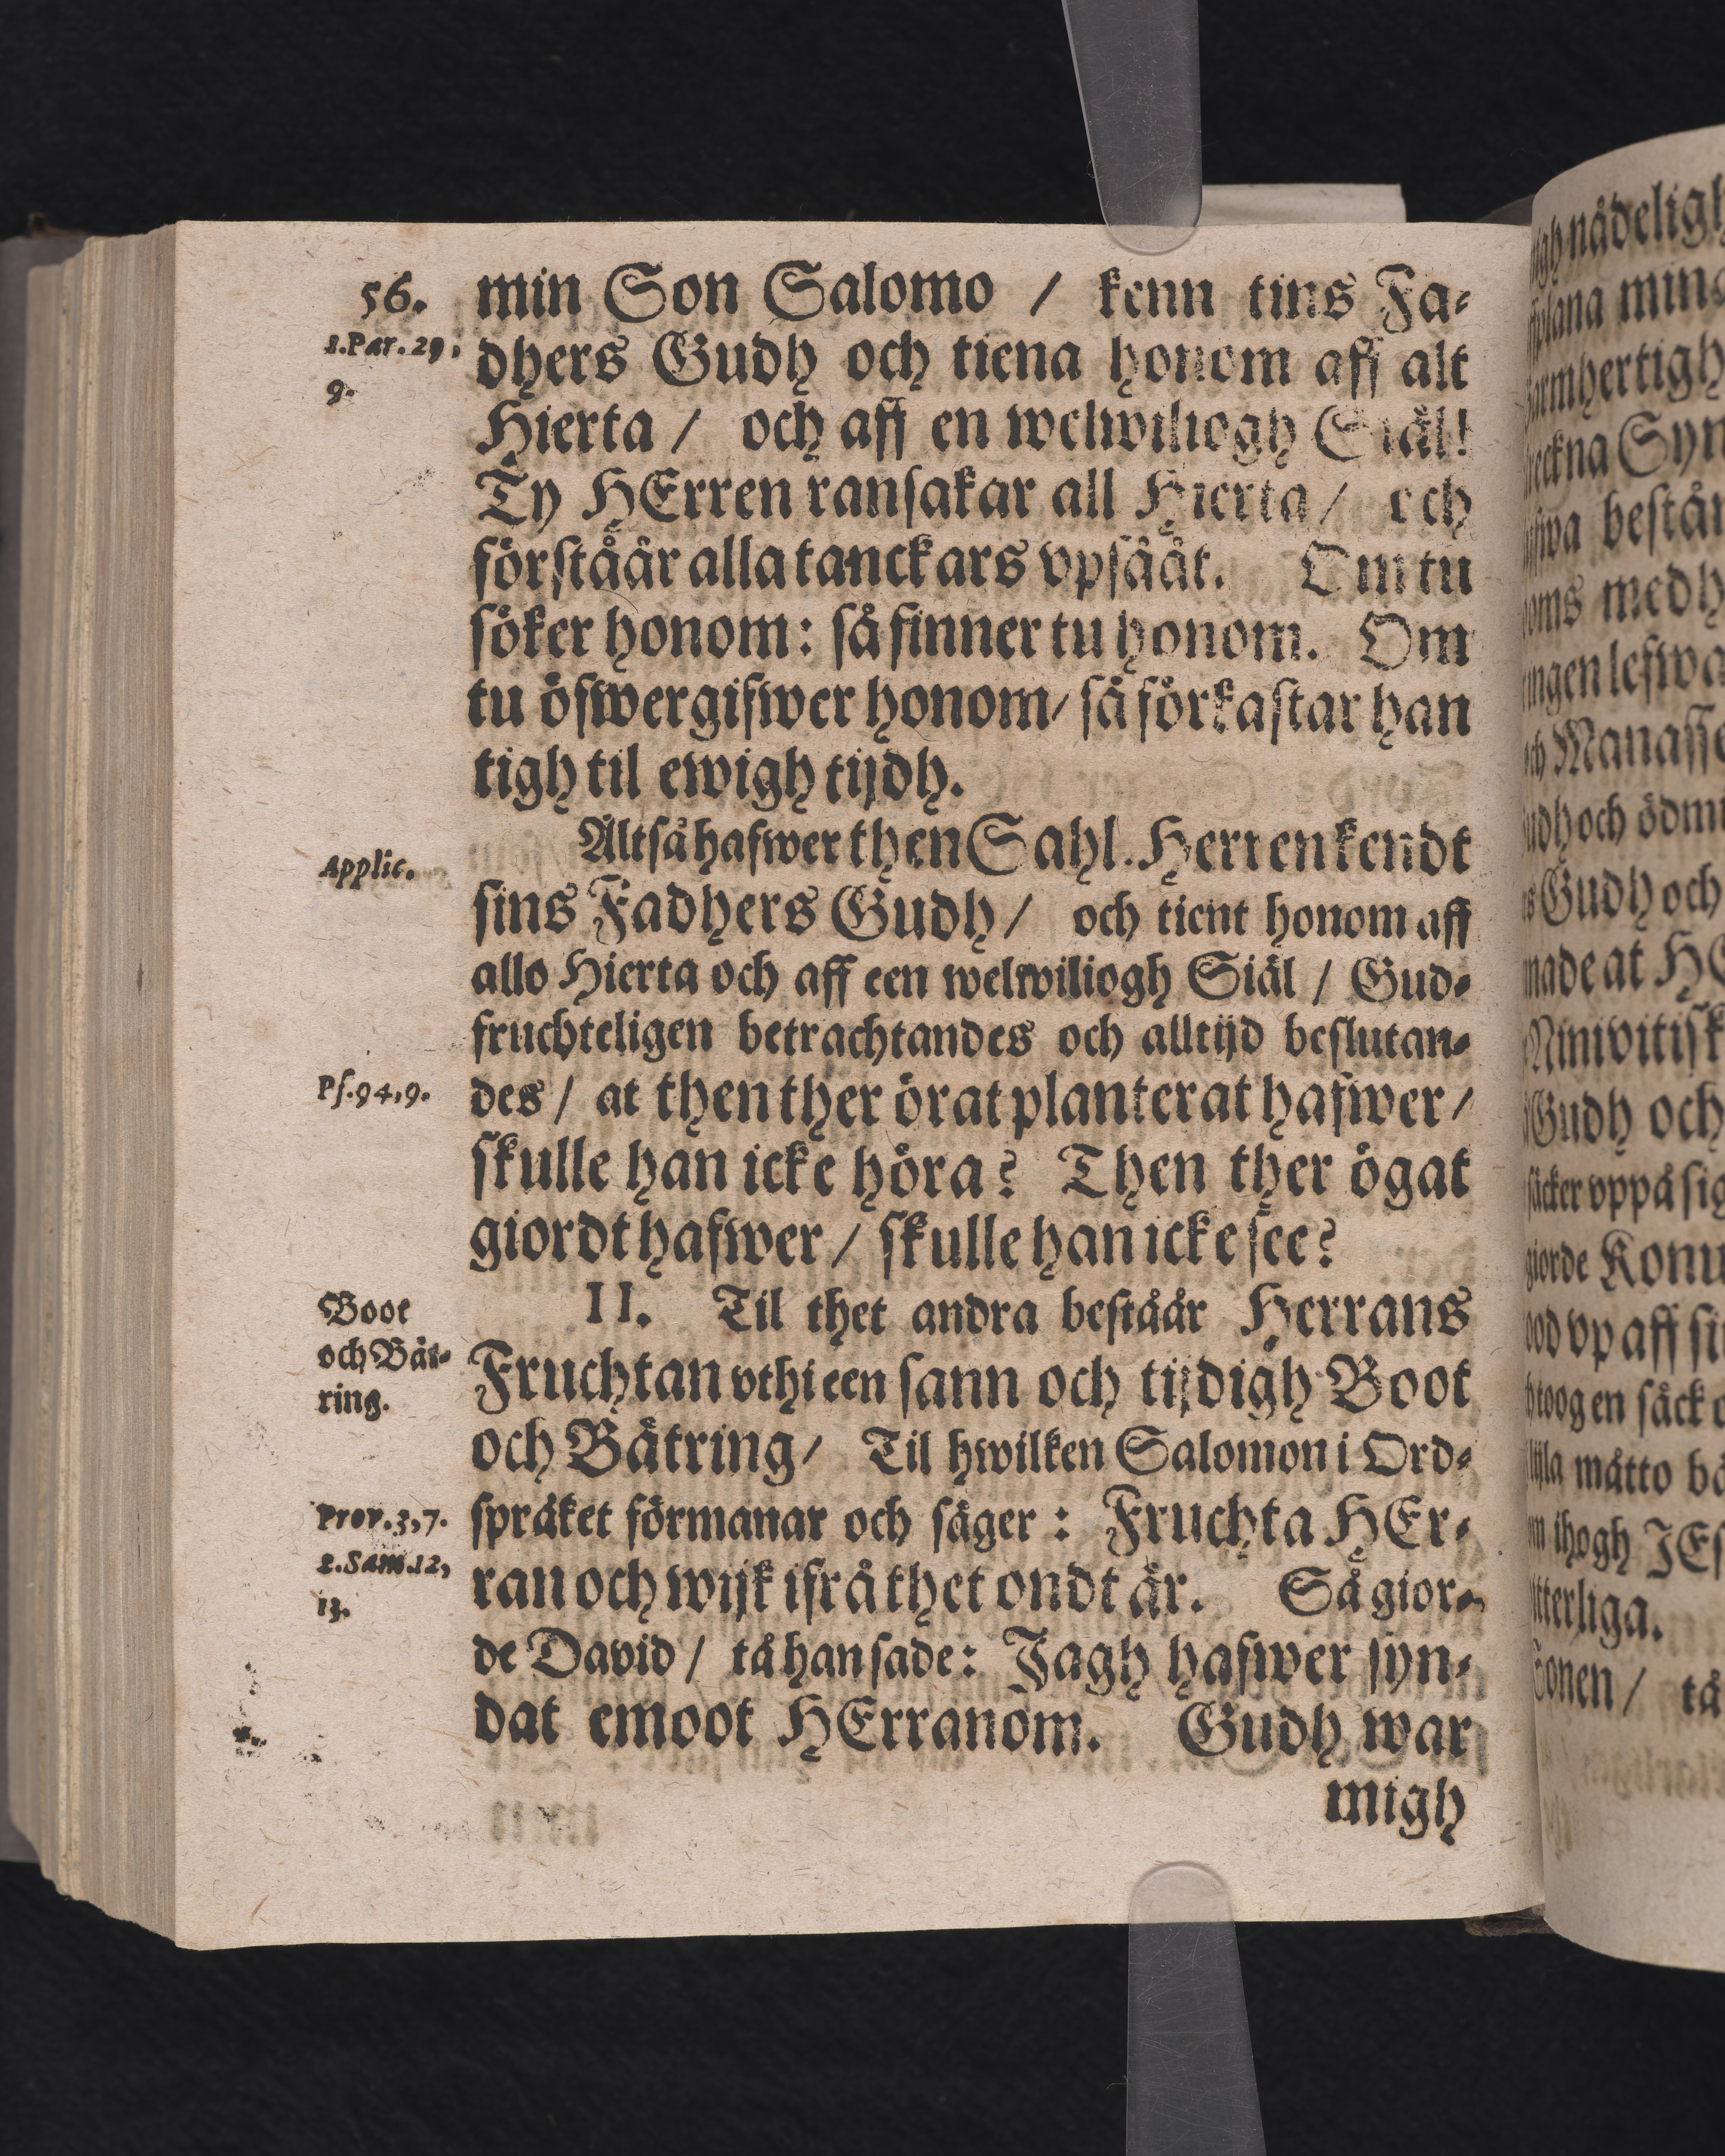 56.
1.Par.29,
9.
min Son Salomo / kenn tins Fa-
dhers Gudh och tiena honom aff alt
Hierta / och aff en welwiliogh Siäl!
Ty HErren ransakar all Hierta / och
förståår alla tanckars vpsååt. Om tu
söker honom: så finner tu honom. Om
tu öfwergifwer honom / så förkastar han
tigh til ewigh tijdh.
Applic.
Altså hafwer then Sahl. Herren kendt
sins Fadhers Gudh / och tient honom aff
allo Hierta och aff een welwiliogh Siäl / Gud-
fruchteligen betrachtandes och alltijd beslutan-
Ps.94,9.
des / at then ther örat planterat hafwer /
skulle han icke höra? Then ther ögat
giordt hafwer / skulle han icke see?
Boot
och Bät-
ring.
II. Til thet andra beståår Herrans
Fruchtan vthi een sann och tijdigh Boot
och Bätring / Til hwilken Salomon i Ord-
Prov.3,7.
2.Sam.12,
13.
språket förmanar och säger: Fruchta HEr-
ran och wijk ifrå thet ondt är. Så gior-
de David / tå han sade: Jagh hafwer syn-
dat emoot HErranom. Gudh war
migh
nådeligh
plana min
armhertigh
Syn
bestån
medh
ingen lefwa
och Manasse
och ödm
Gudh och
made at HE
Ninivitisk
Gudh och
säcker vppå sig
giorde Konu
vp aff si
toog en säck
måtto
ihogh JEs
itterliga.
Sonen / tå